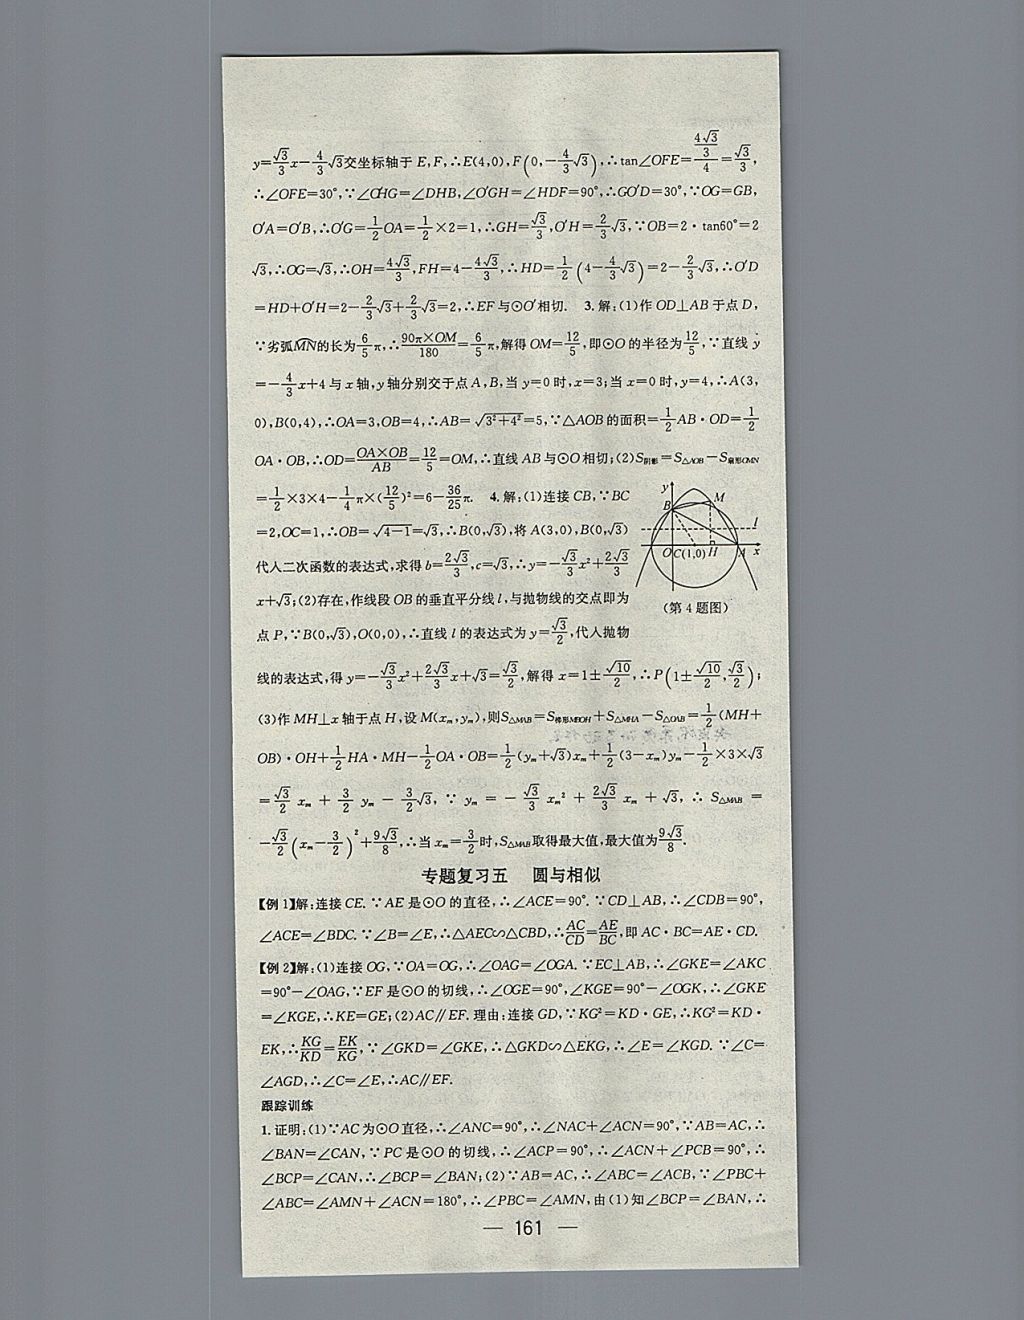 y=\frac{√3}{3}x-\frac{4}{3}√3交坐标轴于 E,F,∴E(4,0),F(0,-\frac{4}{3}√3),∴tan∠OFE=\frac{\frac{4√3}{3}}{4}=\frac{√3}{3},
∴∠OFE=30°,∵∠O'HG=∠DHB,∠O'GH=∠HDF=90°,∴GO'D=30°,∵OG=GB,
O'A=O'B,∴O'G=\frac{1}{2}OA=\frac{1}{2}×2=1,∴GH=\frac{√3}{3},O'H=\frac{2}{3}√3,∵OB=2·tan60°=2
√3,∴OG=√3,∴OH=\frac{4√3}{3},FH=4-\frac{4√3}{3},∴HD=\frac{1}{2}(4-\frac{4}{3}√3)=2-\frac{2}{3}√3,∴O'D
=HD+O'H=2-\frac{2}{3}√3+\frac{2}{3}√3=2,∴EF与⊙O'相切. 3.解:(1)作 OD⊥AB 于点 D,
∵劣弧MN的长为\frac{6}{5}π,∴\frac{90π×OM}{180}=\frac{6}{5}π,解得 OM=\frac{12}{5},即⊙O 的半径为\frac{12}{5},∵直线 y
=-\frac{4}{3}x+4 与 x 轴,y 轴分别交于点 A,B,当 y=0 时,x=3;当 x=0 时,y=4,∴A(3,
0),B(0,4),∴OA=3,OB=4,∴AB=√(3²+4²)=5,∵△AOB 的面积=\frac{1}{2}AB·OD=\frac{1}{2}
OA·OB,∴OD=\frac{OA×OB}{AB}=\frac{12}{5}=OM,∴直线 AB 与⊙O 相切;(2)S阴影=S△AOB-S扇形OMN
=\frac{1}{2}×3×4-\frac{1}{4}π×(\frac{12}{5})²=6-\frac{36}{25}π. 4.解:(1)连接 CB,∵BC
=2,OC=1,∴OB=√(4-1)=√3,∴B(0,√3),将 A(3,0),B(0,√3)
代人二次函数的表达式,求得 b=\frac{2√3}{3},c=√3,∴y=-\frac{√3}{3}x²+\frac{2√3}{3}
x+√3;(2)存在,作线段 OB 的垂直平分线 l,与抛物线的交点即为
点 P,∵B(0,√3),O(0,0),∴直线 l 的表达式为 y=\frac{√3}{2},代人抛物
y
B
M
l
O
C(1,0)
H
A
x
(第 4 题图)
线的表达式,得 y=-\frac{√3}{3}x²+\frac{2√3}{3}x+√3=\frac{√3}{2},解得 x=1±\frac{√10}{2},∴P(1±\frac{√10}{2},\frac{√3}{2});
(3)作 MH⊥x 轴于点 H,设 M(xₘ,yₘ),则S△MAB=S梯形MBOH+S△MHA-S△OAB=\frac{1}{2}(MH+
OB)·OH+\frac{1}{2}HA·MH-\frac{1}{2}OA·OB=\frac{1}{2}(yₘ+√3)xₘ+\frac{1}{2}(3-xₘ)yₘ-\frac{1}{2}×3×√3
=\frac{√3}{2}xₘ+\frac{3}{2}yₘ-\frac{3}{2}√3,∵yₘ=-\frac{√3}{3}xₘ²+\frac{2√3}{3}xₘ+√3,∴S△MAB=
-\frac{√3}{2}(xₘ-\frac{3}{2})²+\frac{9√3}{8},∴当 xₘ=\frac{3}{2}时,S△MAB取得最大值,最大值为\frac{9√3}{8}.
专题复习五 圆与相似
【例 1】解:连接 CE.∵AE 是⊙O 的直径,∴∠ACE=90°.∵CD⊥AB,∴∠CDB=90°,
∠ACE=∠BDC.∵∠B=∠E,∴△AEC∽△CBD,∴\frac{AC}{CD}=\frac{AE}{BC},即 AC·BC=AE·CD.
【例 2】解:(1)连接 OG,∵OA=OG,∴∠OAG=∠OGA.∵EC⊥AB,∴∠GKE=∠AKC
=90°-∠OAG,∵EF 是⊙O 的切线,∴∠OGE=90°,∠KGE=90°-∠OGK,∴∠GKE
=∠KGE,∴KE=GE;(2)AC∥EF.理由:连接 GD,∵KG²=KD·GE,∴KG²=KD·
EK,∴\frac{KG}{KD}=\frac{EK}{KG},∵∠GKD=∠GKE,∴△GKD∽△EKG,∴∠E=∠KGD.∵∠C=
∠AGD,∴∠C=∠E,∴AC∥EF.
跟踪训练
1.证明:(1)∵AC 为⊙O 直径,∴∠ANC=90°,∴∠NAC+∠ACN=90°,∵AB=AC,∴
∠BAN=∠CAN,∵PC 是⊙O 的切线,∴∠ACP=90°,∴∠ACN+∠PCB=90°,∴
∠BCP=∠CAN,∴∠BCP=∠BAN;(2)∵AB=AC,∴∠ABC=∠ACB,∵∠PBC+
∠ABC=∠AMN+∠ACN=180°,∴∠PBC=∠AMN,由(1)知∠BCP=∠BAN,∴
— 161 —